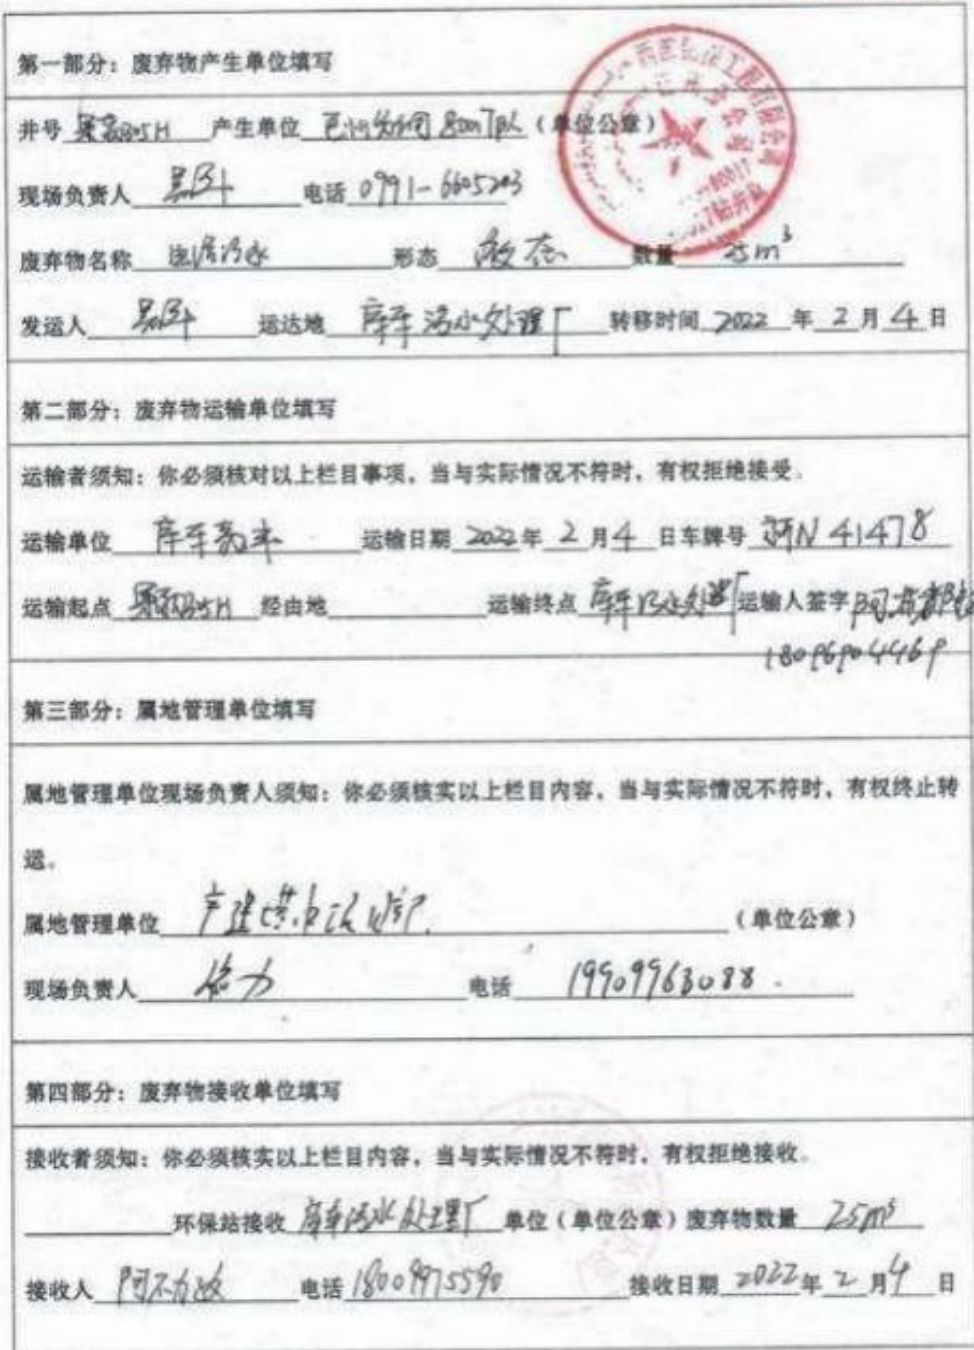 第一部分：废弃物产生单位填写
井号 产生单位 （单位公章）
现场负责人 电话 0991-6605203
废弃物名称 生活污水 形态 液态 数量 25m³
发运人 运达地 库车污水处理厂 转移时间 2022 年 2 月 4 日
第二部分：废弃物运输单位填写
运输者须知：你必须核对以上栏目事项，当与实际情况不符时，有权拒绝接受。
运输单位 库车 运输日期 2022 年 2 月 4 日车牌号 新N 41478
运输起点 经由地 运输终点 库车污水处理厂 运输人签字
第三部分：属地管理单位填写
属地管理单位现场负责人须知：你必须核实以上栏目内容，当与实际情况不符时，有权终止转
运。
属地管理单位 （单位公章）
现场负责人 电话 19909963088.
第四部分：废弃物接收单位填写
接收者须知：你必须核实以上栏目内容，当与实际情况不符时，有权拒绝接收。
环保站接收 库车污水处理厂 单位（单位公章）废弃物数量 25m³
接收人 电话 18009975590 接收日期 2022 年 2 月 4 日